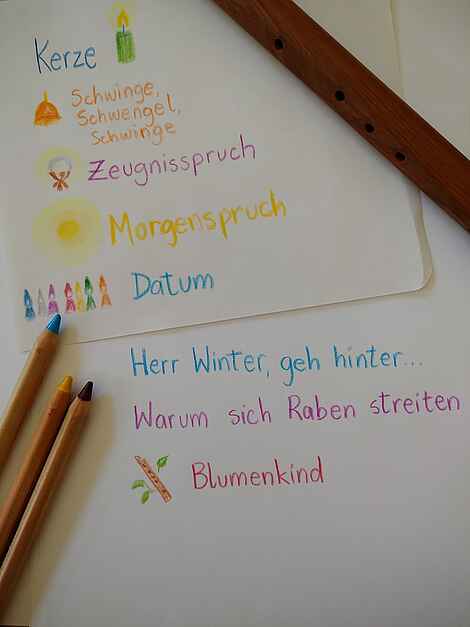 Kerze
Schwinge,
Schwengel,
Schwinge
Zeugnisspruch
Morgenspruch
Datum
Herr Winter, geh hinter...
Warum sich Raben streiten
Blumenkind